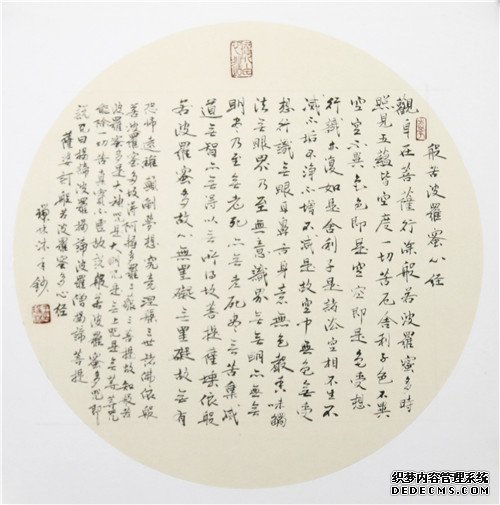 般若波羅蜜心経
觀自在菩薩行深般若波羅蜜多時
照見五蘊皆空度一切苦厄舍利子色不異
空空不異色色即是空空即是色受想
行識亦復如是舍利子是諸法空相不生不
滅不垢不淨不增不減是故空中無色無受
想行識無眼耳鼻舌身意無色聲香味觸
法無眼界乃至無意識界無無明亦無無
明盡乃至無老死亦無老死盡無苦集滅
道無智亦無得以無所得故菩提薩埵依般
若波羅蜜多故心無罣礙無罣礙故無有
恐怖遠離顛倒夢想究竟涅槃三世諸佛依般
若波羅蜜多故得阿耨多羅三藐三菩提故知般若
波羅蜜多是大神咒是大明咒是無上咒是無等等咒
能除一切苦真實不虛故說般若波羅蜜多咒即
說咒曰揭諦揭諦波羅揭諦波羅僧揭諦菩提
薩婆訶般若波羅蜜多心経
沐手鈔
织梦内容管理系统
DEDECMS.COM